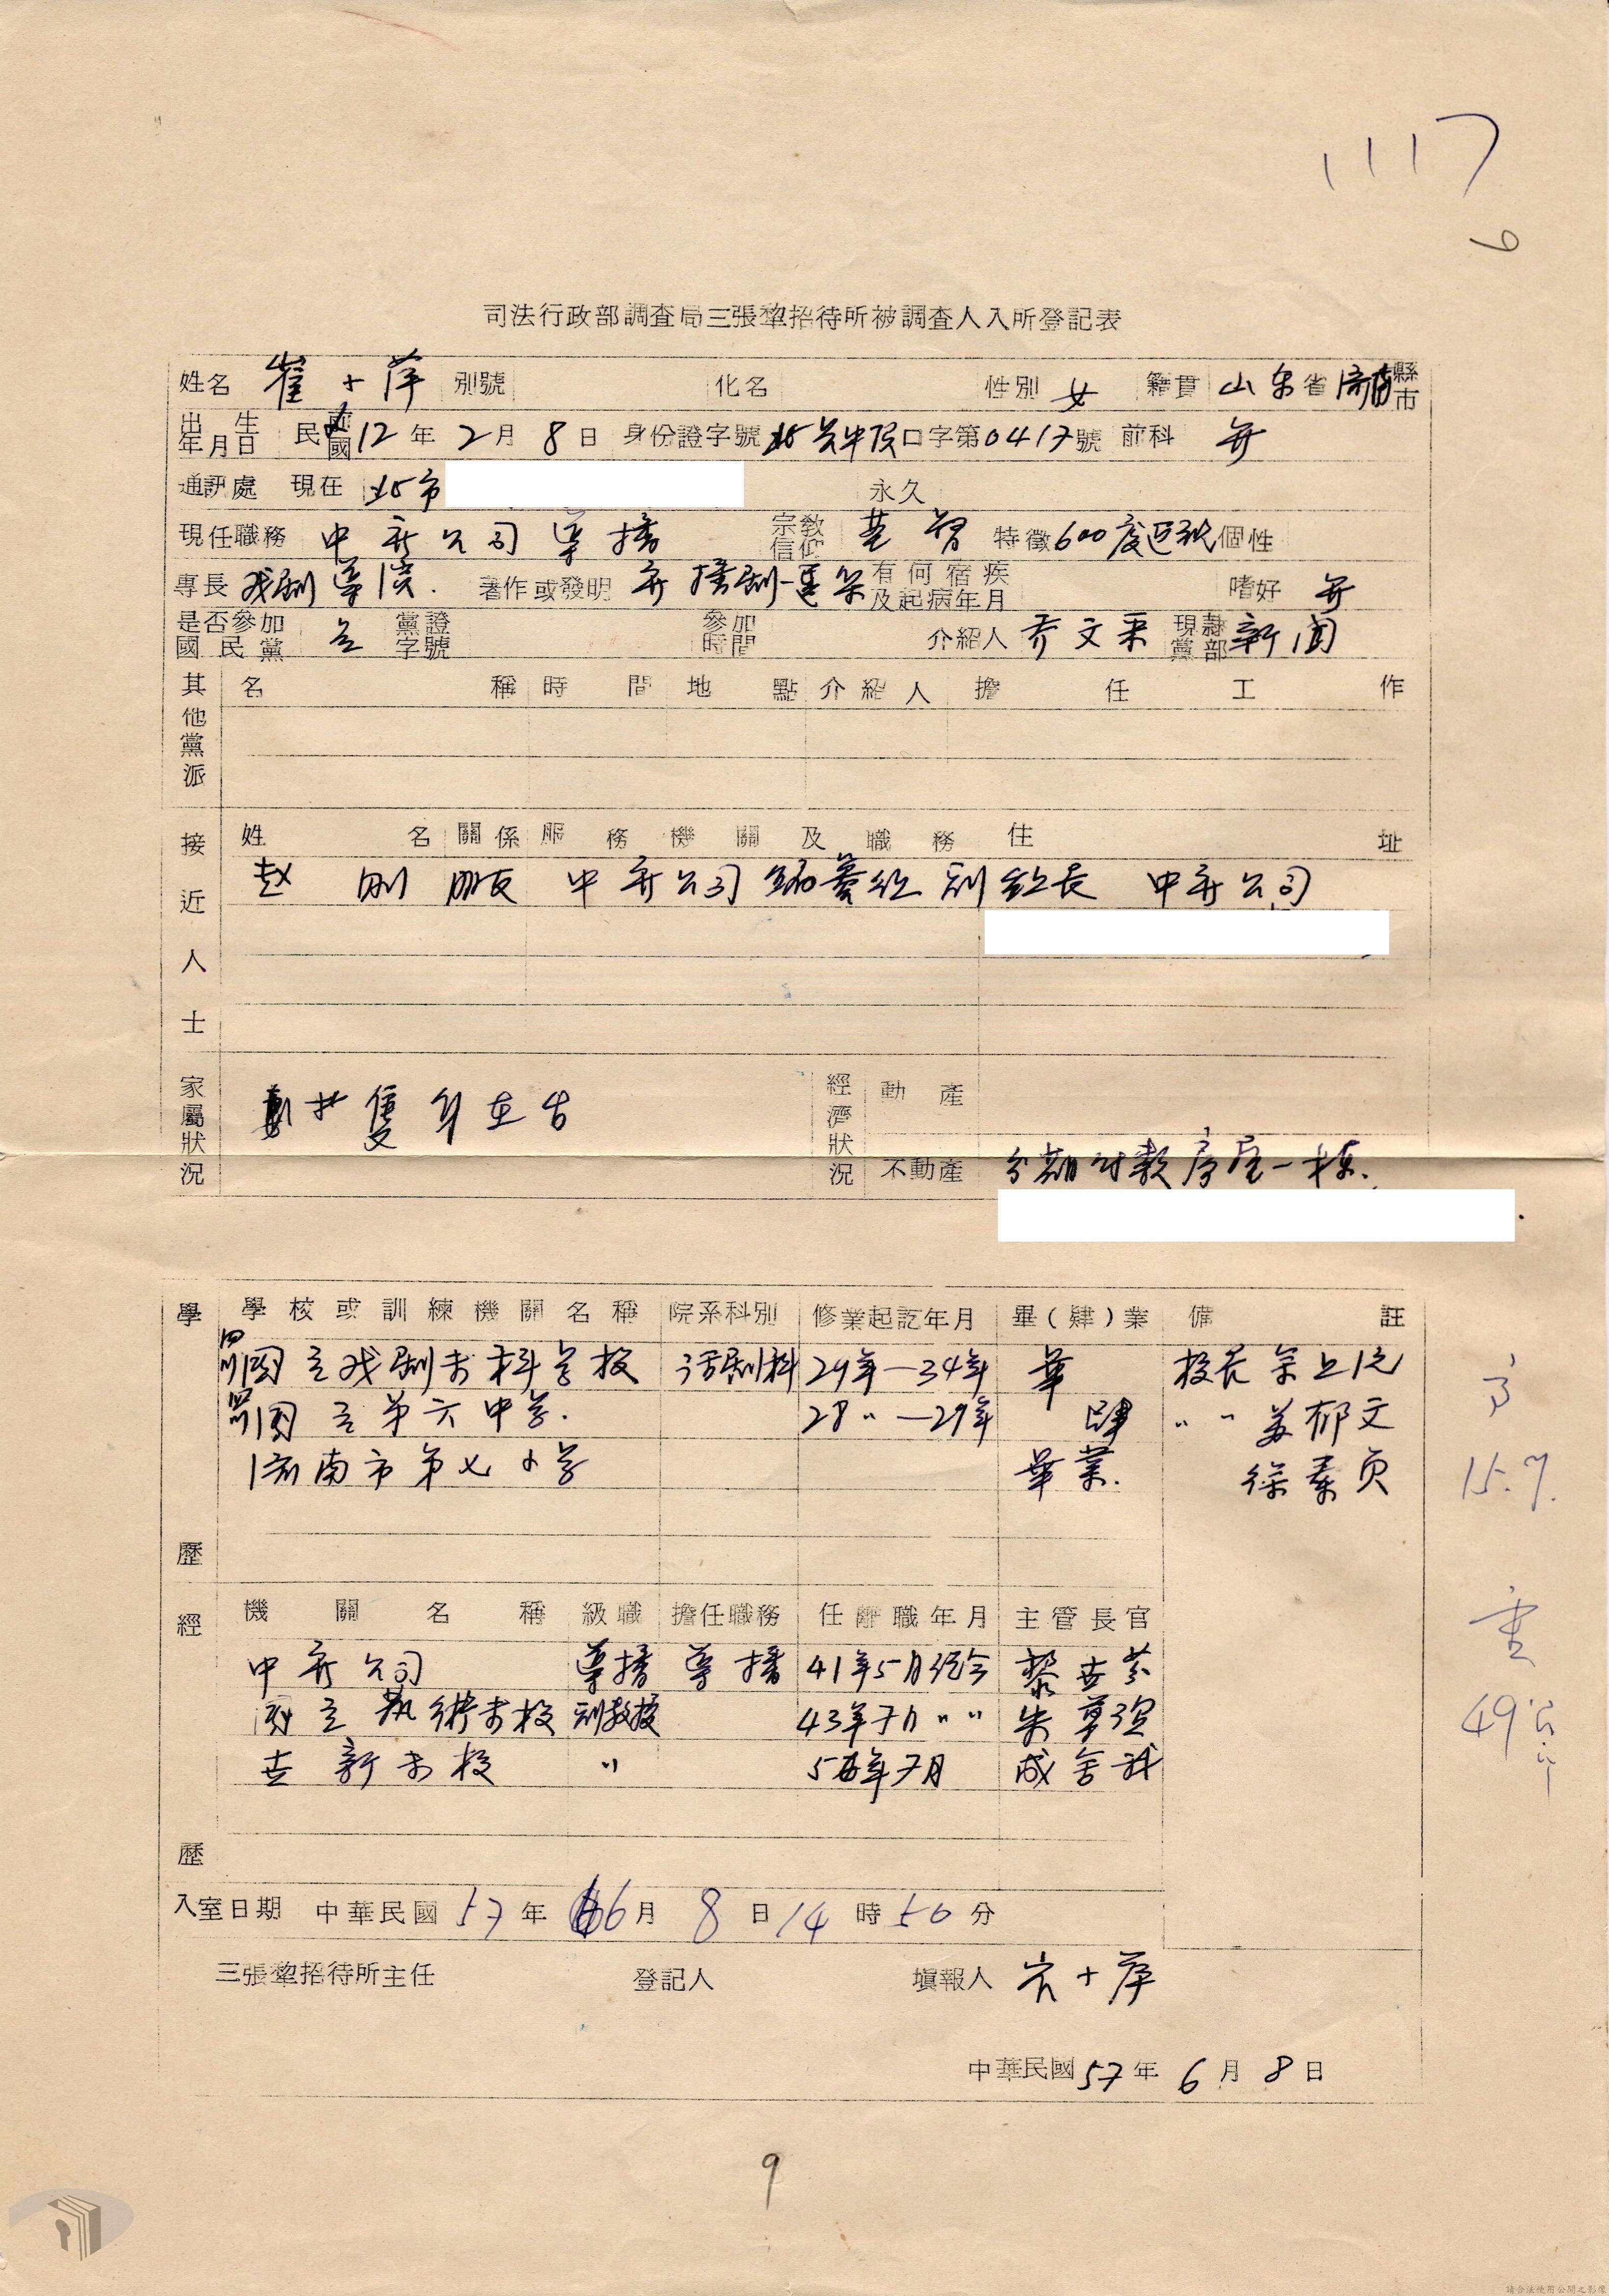 1117
6
司法行政部調查局三張犂招待所被調查人入所登記表
姓名 崔小萍 別號 化名 性別 女 籍貫 山东省 濟南 縣市
出生年月日 民國12年2月8日 身份證字號 口字第0417號 前科 無
通訊處 現在 北市 永久
現任職務 中廣公司導播 宗教信仰 基督 特徵 600度近視 個性
專長 戏劇導演. 著作或發明 有何宿疾及起病年月 嗜好 無
是否參加國民黨 是 黨證字號 參加時間 介紹人 乔文采 現隸黨部 新聞
其他黨派 名稱 時間 地點 介紹人 擔任工作
接近人士 姓名 關係 服務機關及職務 住址
赵刚 朋友 中廣公司編審組副組長 中廣公司
家屬狀況 隻身在台 經濟狀況 動產
不動產 分期付款房屋一栋.
學歷 學校或訓練機關名稱 院系科別 修業起訖年月 畢(肄)業 備註
四川國立戏劇专科学校 话劇科 29年—34年 畢 校長余上沅
四川國立第六中学. 28〃—29年 肄 〃〃 苗郁文
濟南市第七小学 畢業. 徐秦贞
高
15.7.
重
49公斤
經歷 機關名稱 級職 擔任職務 任離職年月 主管長官
中廣公司 導播 導播 41年5月迄今 黎世芬
國立艺術专校 副教授 43年7月〃〃 朱尊誼
世新专校 〃 年7月 成舍我
入室日期 中華民國57年6月8日14時50分
三張犂招待所主任 登記人 填報人 崔小萍
中華民國57年6月8日
9
請合法使用公開之影像